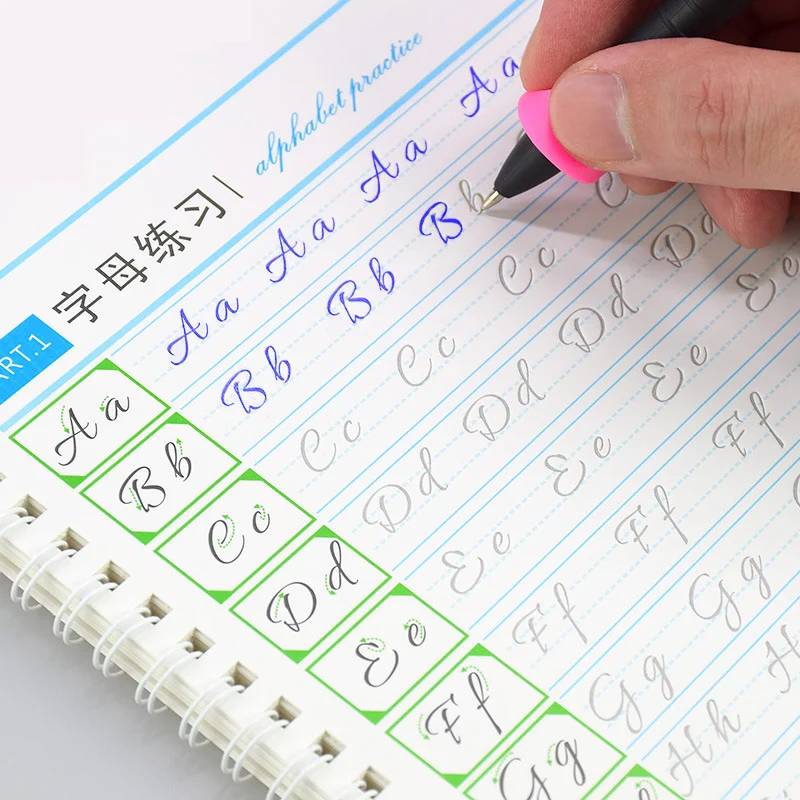 ART.1 字母练习 alphabet practice
Aa Aa Aa Aa Aa
Bb Bb Bb Bb
Cc Cc Cc Cc C
Dd Dd Dd Dd Dd
Ee Ee Ee Ee Ee
Ff Ff Ff Ff
Gg Gg Gg
Hh H